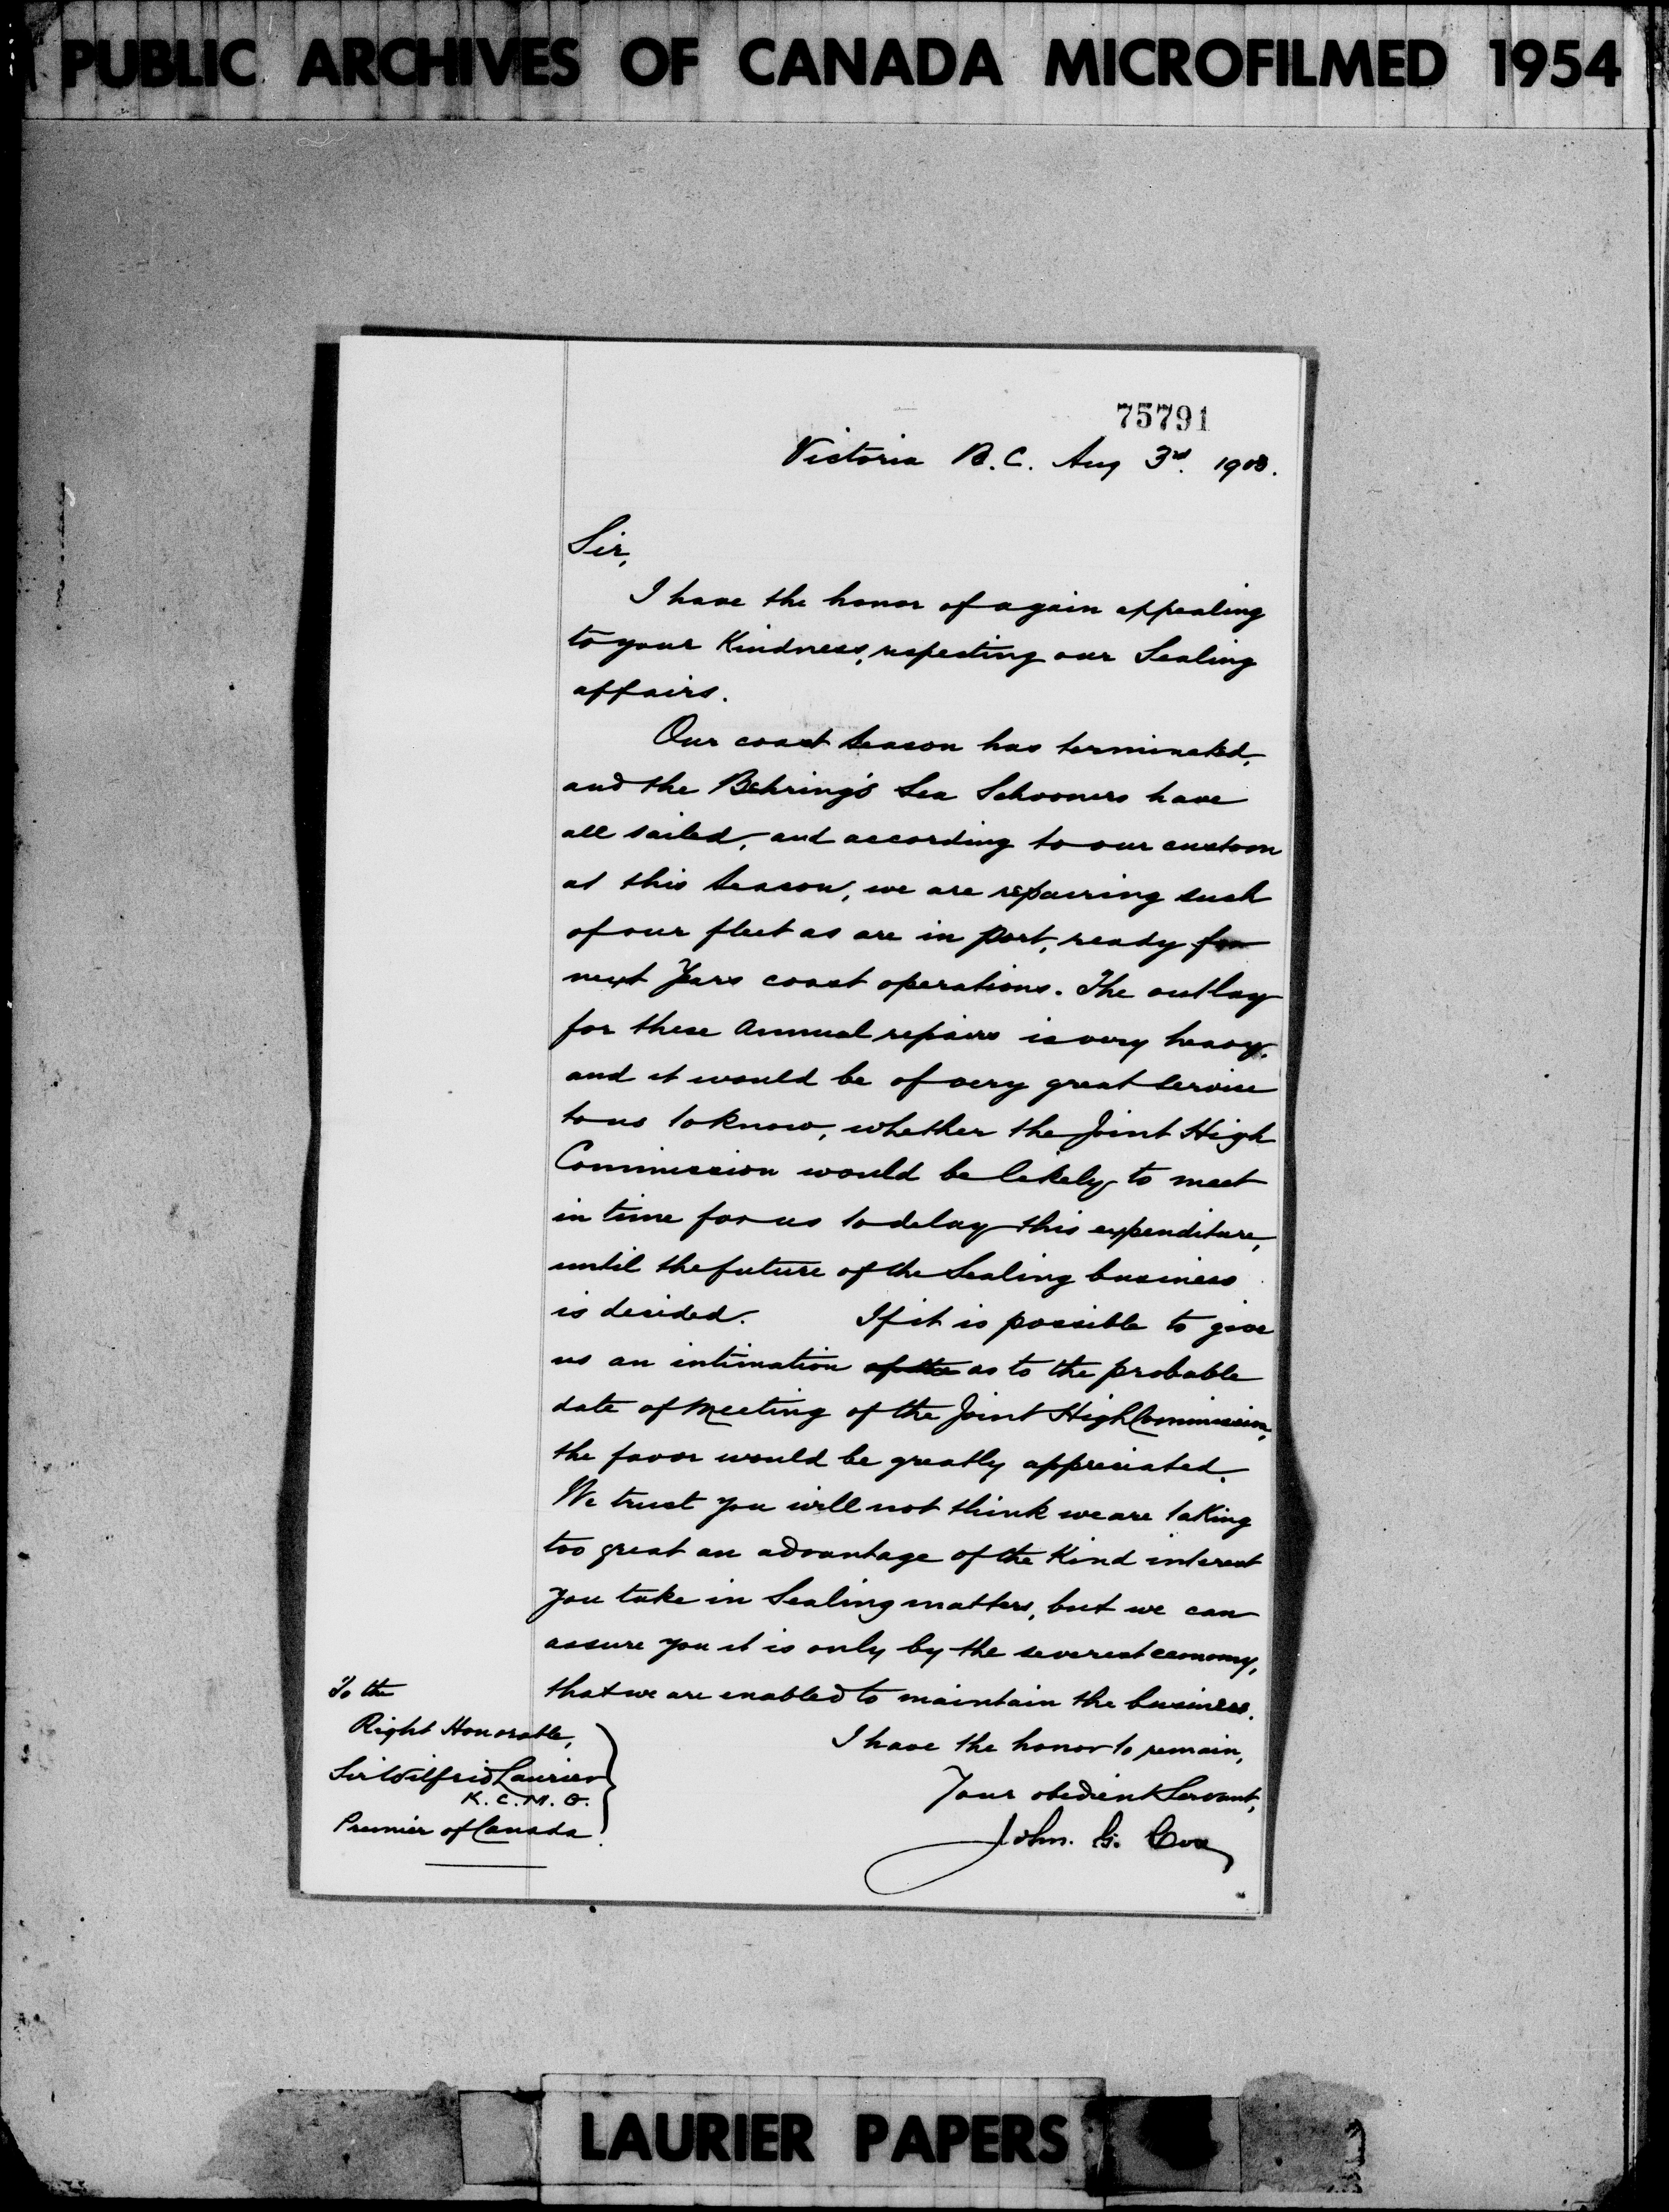 PUBLIC ARCHIVES OF CANADA MICROFILMED 1954
75791
Victoria B.C. Aug 3rd. 1903.
Sir,
I have the honor of again appealing
to your Kindness, respecting our Sealing
affairs.
Our coast season has terminated,
and the Behring's Sea Schooners have
all sailed, and according to our custom
at this season, we are repairing such
of our fleet as are in port, ready for
next Years coast operations. The outlay
for these annual repairs is very heavy,
and it would be of very great service
to us to know, whether the Joint High
Commission would be likely to meet
in time for us to delay this expenditure,
until the future of the Sealing business
is decided. If it is possible to give
us an intimation of the as to the probable
date of Meeting of the Joint High Commission,
the favor would be greatly appreciated.
We trust you will not think we are taking
too great an advantage of the Kind interest
you take in Sealing matters, but we can
assure you it is only by the severest economy,
that we are enabled to maintain the business.
I have the honor to remain,
Your obedient Servant,
John. G. Cox
To the
Right Honorable,
Sir Wilfrid Laurier
K.C.M.G.
Premier of Canada.
LAURIER PAPERS